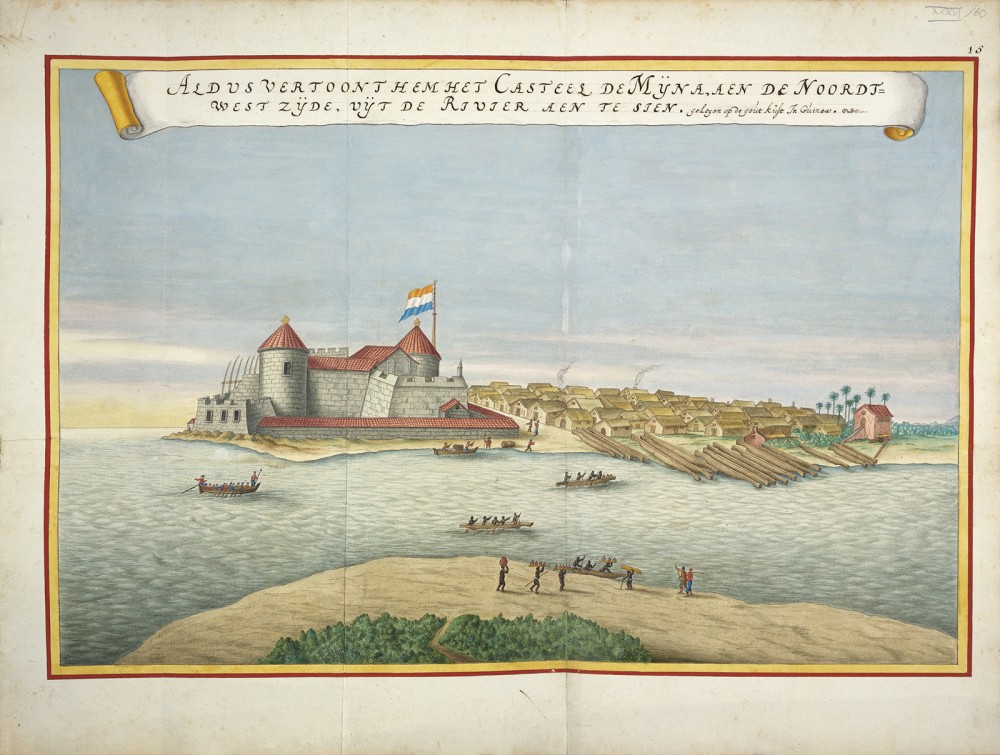 XXXVI / 60
15
ALDVS VERTOONT HEM HET CASTEEL DE MŸNA, AEN DE NOORDT=
WEST ZŸDE, VŸT DE RIVIER AEN TE SIEN. gelegen op de gout kust In Guinea.